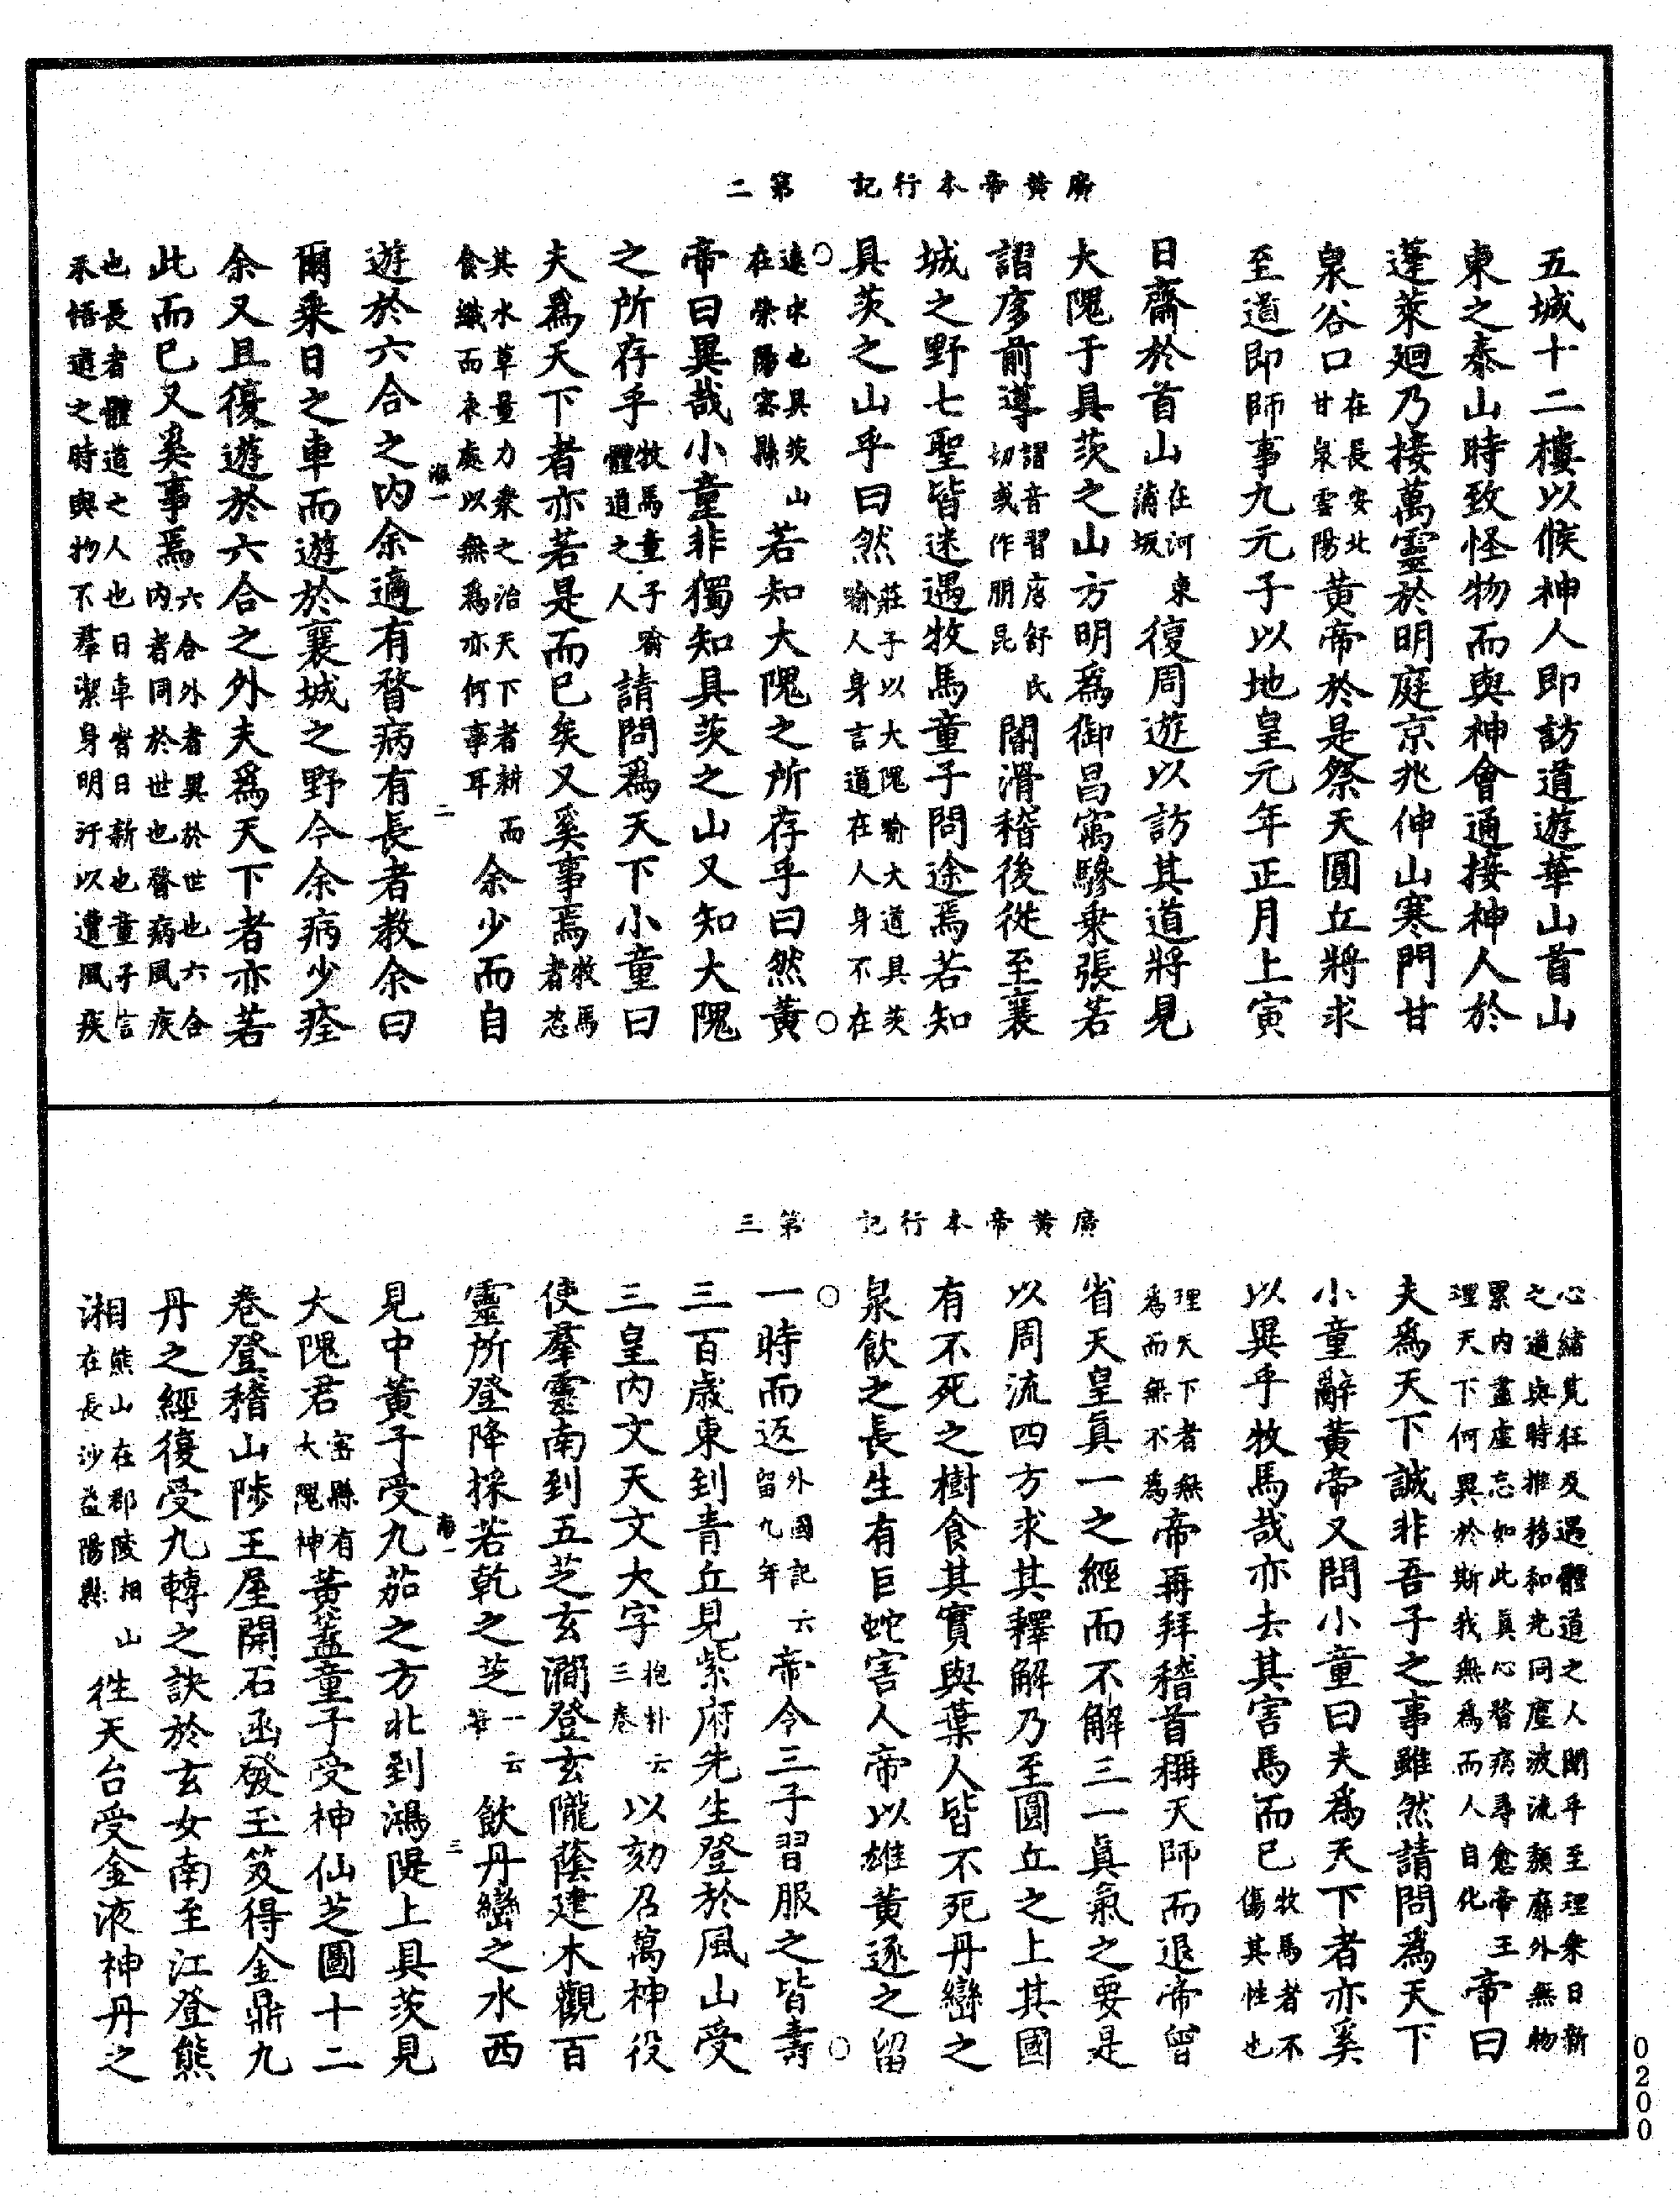 廣黃帝本行記　第二
五城十二樓以候神人即訪道遊華山首山
東之泰山時致怪物而與神會通接神人於
蓬萊廻乃接萬靈於明庭京兆仲山寒門甘
泉谷口在長安北甘泉雲陽黃帝於是祭天圓丘將求
至道即師事九元子以地皇元年正月上寅
日齋於首山在河東蒲坂復周遊以訪其道將見
大隗于具茨之山方明爲御昌㝢驂乗張若
謵庨前導謵音習庨舒氏切或作朋昆閽滑稽後從至襄
城之野七聖皆迷遇牧馬童子問途焉若知
具茨之山乎曰然莊子以大隗喻大道具茨喻人身言道在人身不在
遠求也具茨山在滎陽密縣若知大隗之所存乎曰然黃
帝曰異哉小童非獨知具茨之山又知大隗
之所存乎牧馬童子喻體道之人請問爲天下小童曰
夫爲天下者亦若是而已矣又奚事焉牧馬者恣
其水草量力乗之治天下者耕而食織而衣處以無爲亦何事耳余少而自
二
遊於六合之内余適有瞀病有長者教余曰
爾乗日之車而遊於襄城之野今余病少痊
余又且復遊於六合之外夫爲天下者亦若
此而已又奚事焉六合外者異於世也六合内者同於世也瞀病風疾
也長者體道之人也日車者日新也童子言未悟道之時與物不羣潔身明汙以遭風疾
廣黃帝本行記　第三
心緒荒狂及遇體道之人聞乎至理乗日新之道與時推移和光同塵波流頹靡外無物
累内盡虛忘如此眞心瞀病尋愈帝王理天下何異於斯我無爲而人自化帝曰
夫爲天下誠非吾子之事雖然請問爲天下
小童辭黃帝又問小童曰夫爲天下者亦奚
以異乎牧馬哉亦去其害馬而已牧馬者不傷其性也
理天下者無爲而無不爲帝再拜稽首稱天師而退帝曾
省天皇眞一之經而不解三一眞氣之要是
以周流四方求其釋解乃至圓丘之上其國
有不死之樹食其實與葉人皆不死丹巒之
泉飲之長生有巨蛇害人帝以雄黃逐之留
一時而返外國記云留九年帝令三子習服之皆壽
三百歳東到青丘見紫府先生登於風山受
三皇内文天文大字抱朴云三卷以劾召萬神役
使羣靈南到五芝玄澗登玄隴蔭建木觀百
靈所登降採若乾之芝一云華飲丹巒之水西
三
見中黃子受九茄之方北到鴻隄上具茨見
大隗君密縣有大隗神黃蓋童子受神仙芝圖十二
卷登稽山陟王屋開石函發玉笈得金鼎九
丹之經復受九轉之訣於玄女南至江登熊
湘熊山在郡陵相山在長沙益陽縣往天台受金液神丹之
0200